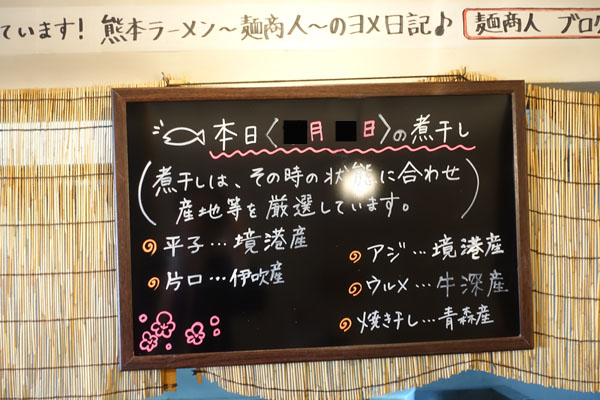 ています! 熊本ラーメン～麺商人～のヨメ日記♪ 麺商人 ブログ
本日〈 月 日〉の煮干し
(煮干しは、その時の状態に合わせ
産地等を厳選しています。)
平子…境港産
片口…伊吹産
アジ…境港産
ウルメ…牛深産
焼き干し…青森産